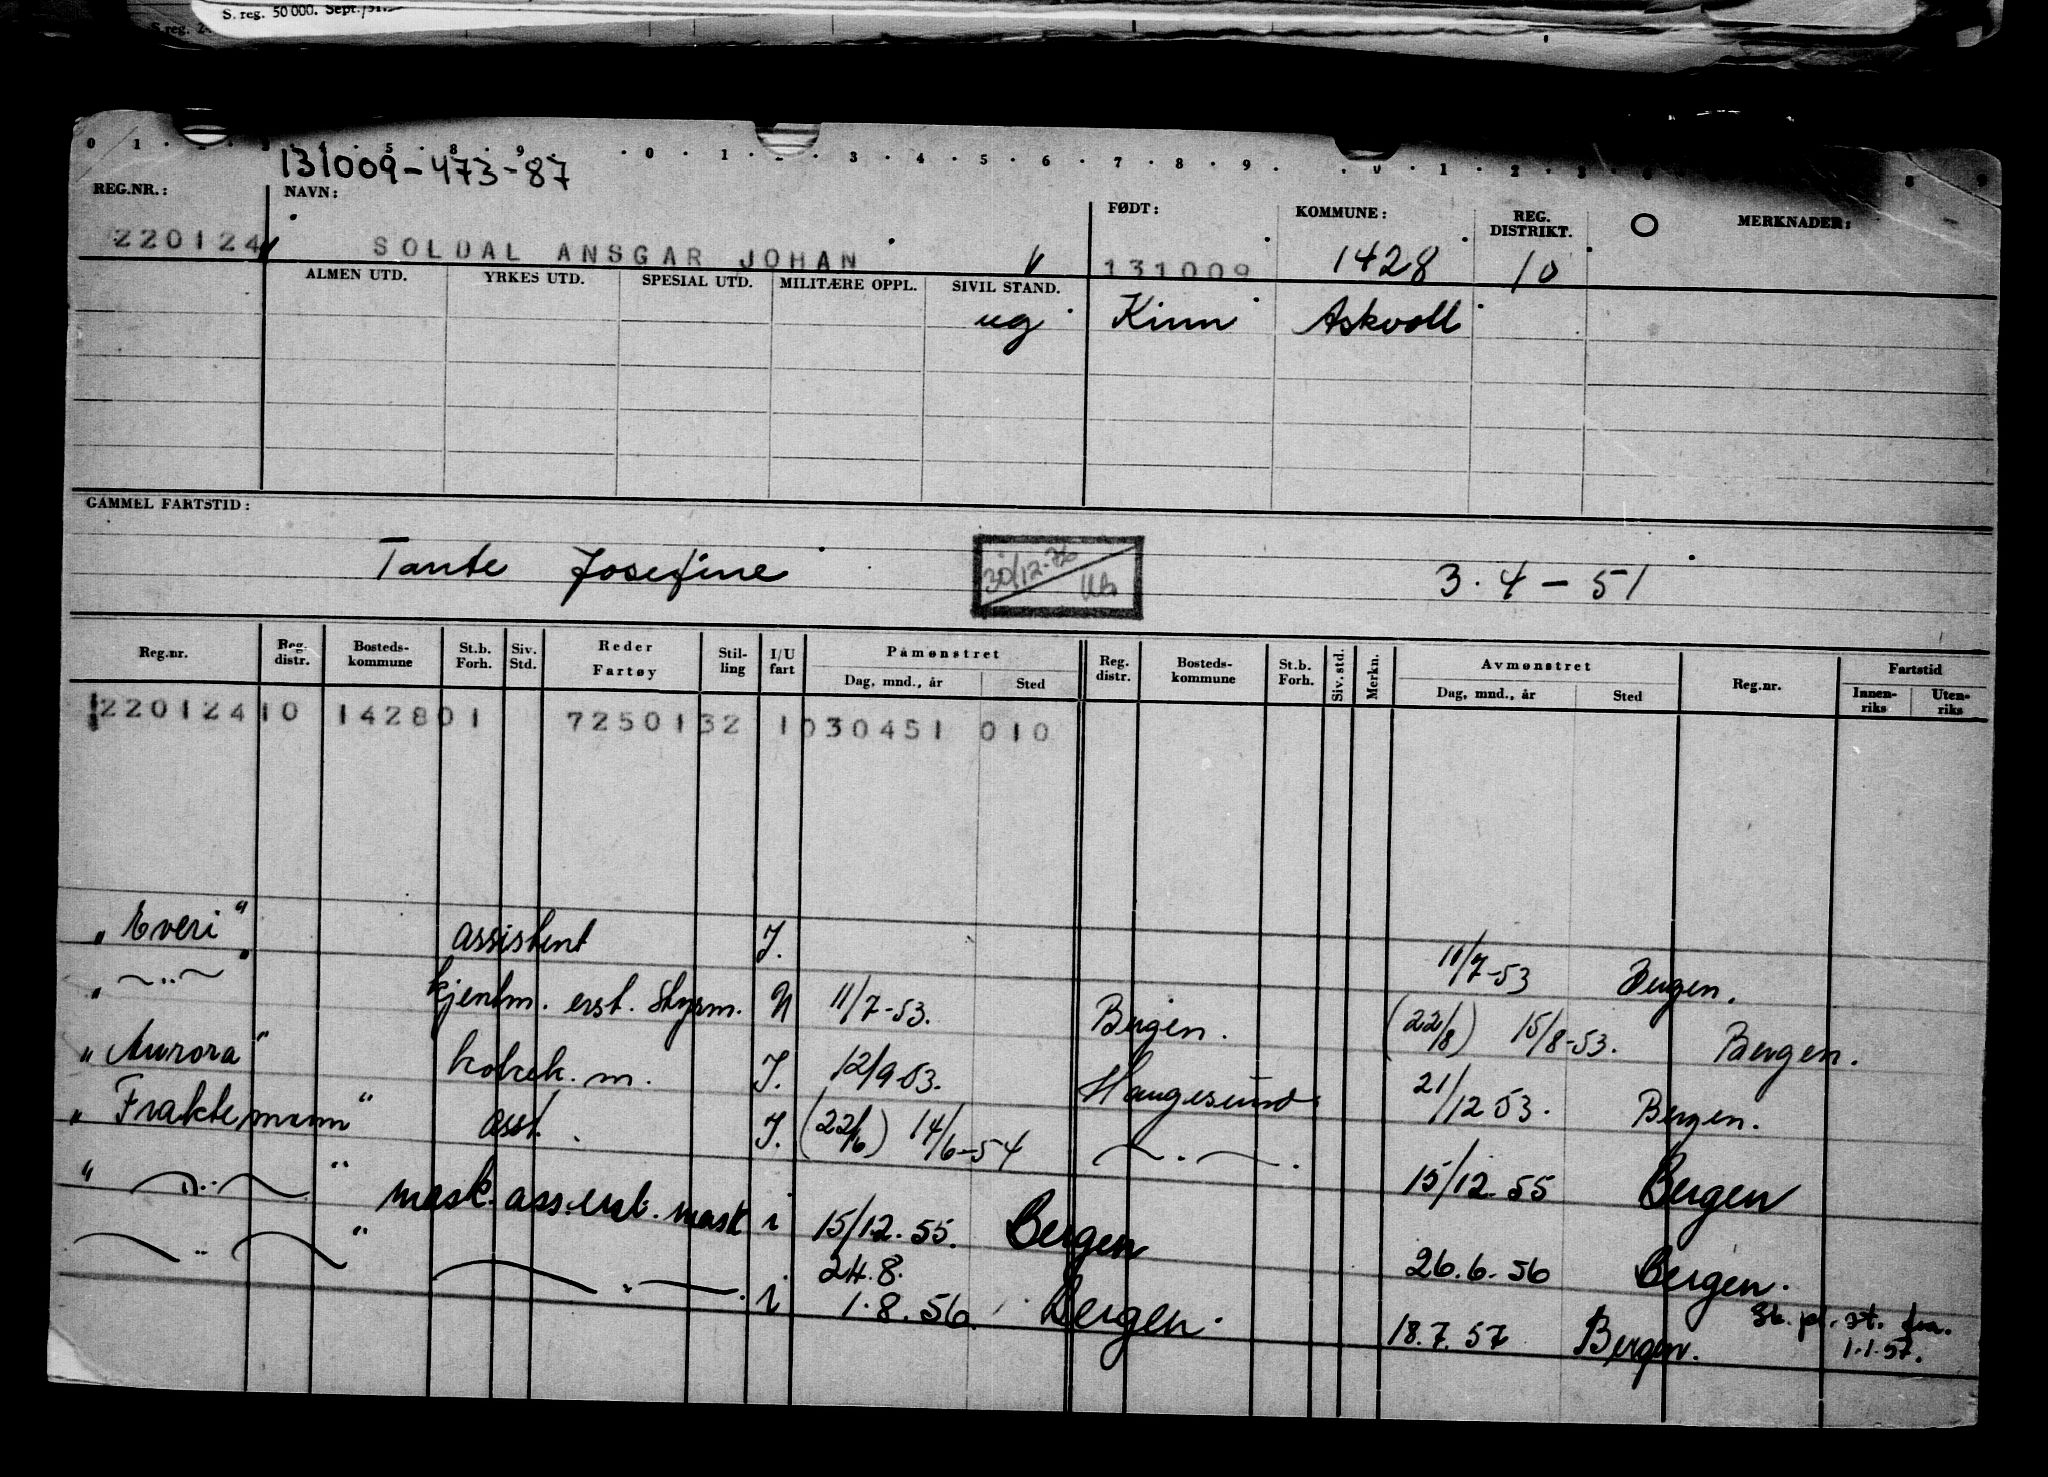 S. reg. 50 000. Sept./51.
S. reg. 2
131009-473-87
REG.NR.: NAVN: FØDT: KOMMUNE: REG. DISTRIKT. O MERKNADER:
220124 SOLDAL ANSGAR JOHAN 131009 1428 10
ALMEN UTD. YRKES UTD. SPESIAL UTD. MILITÆRE OPPL. SIVIL STAND.
ug Kinn Askvoll
GAMMEL FARTSTID:
Tante Josefine 30/12-76 3.4-51
Reg.nr. Reg. distr. Bosteds-kommune St.b. Forh. Siv. Std. Reder Fartøy Stil-ling I/U fart Påmønstret Dag, mnd., år Sted Reg. distr. Bosteds-kommune St.b. Forh. Siv. std. Merkn. Avmønstret Dag, mnd., år Sted Reg.nr. Fartstid Innen-riks Uten-riks
220124 10 1428 01 7250132 1 030451 010
"Everi" assistent I. 11/7-53 Bergen.
" — " — " kjentm. erst. styrm. N 11/7-53. Bergen. (22/8) 15/8-53. Bergen.
"Aurora" kokek. m. I. 12/9-53. Haugesund. 21/12 53. Bergen.
"Fraktemann" asst. I. (22/6) 14/6-54 — " — . 15/12.55 Bergen
" — " — " mask. ass. erst. mask i 15/12.55. Bergen 26.6.56 Bergen.
— " — " — " — . i 24.8. 1.8.56. Bergen. 18.7.57 Bergen. st. fra. 1.1.57.